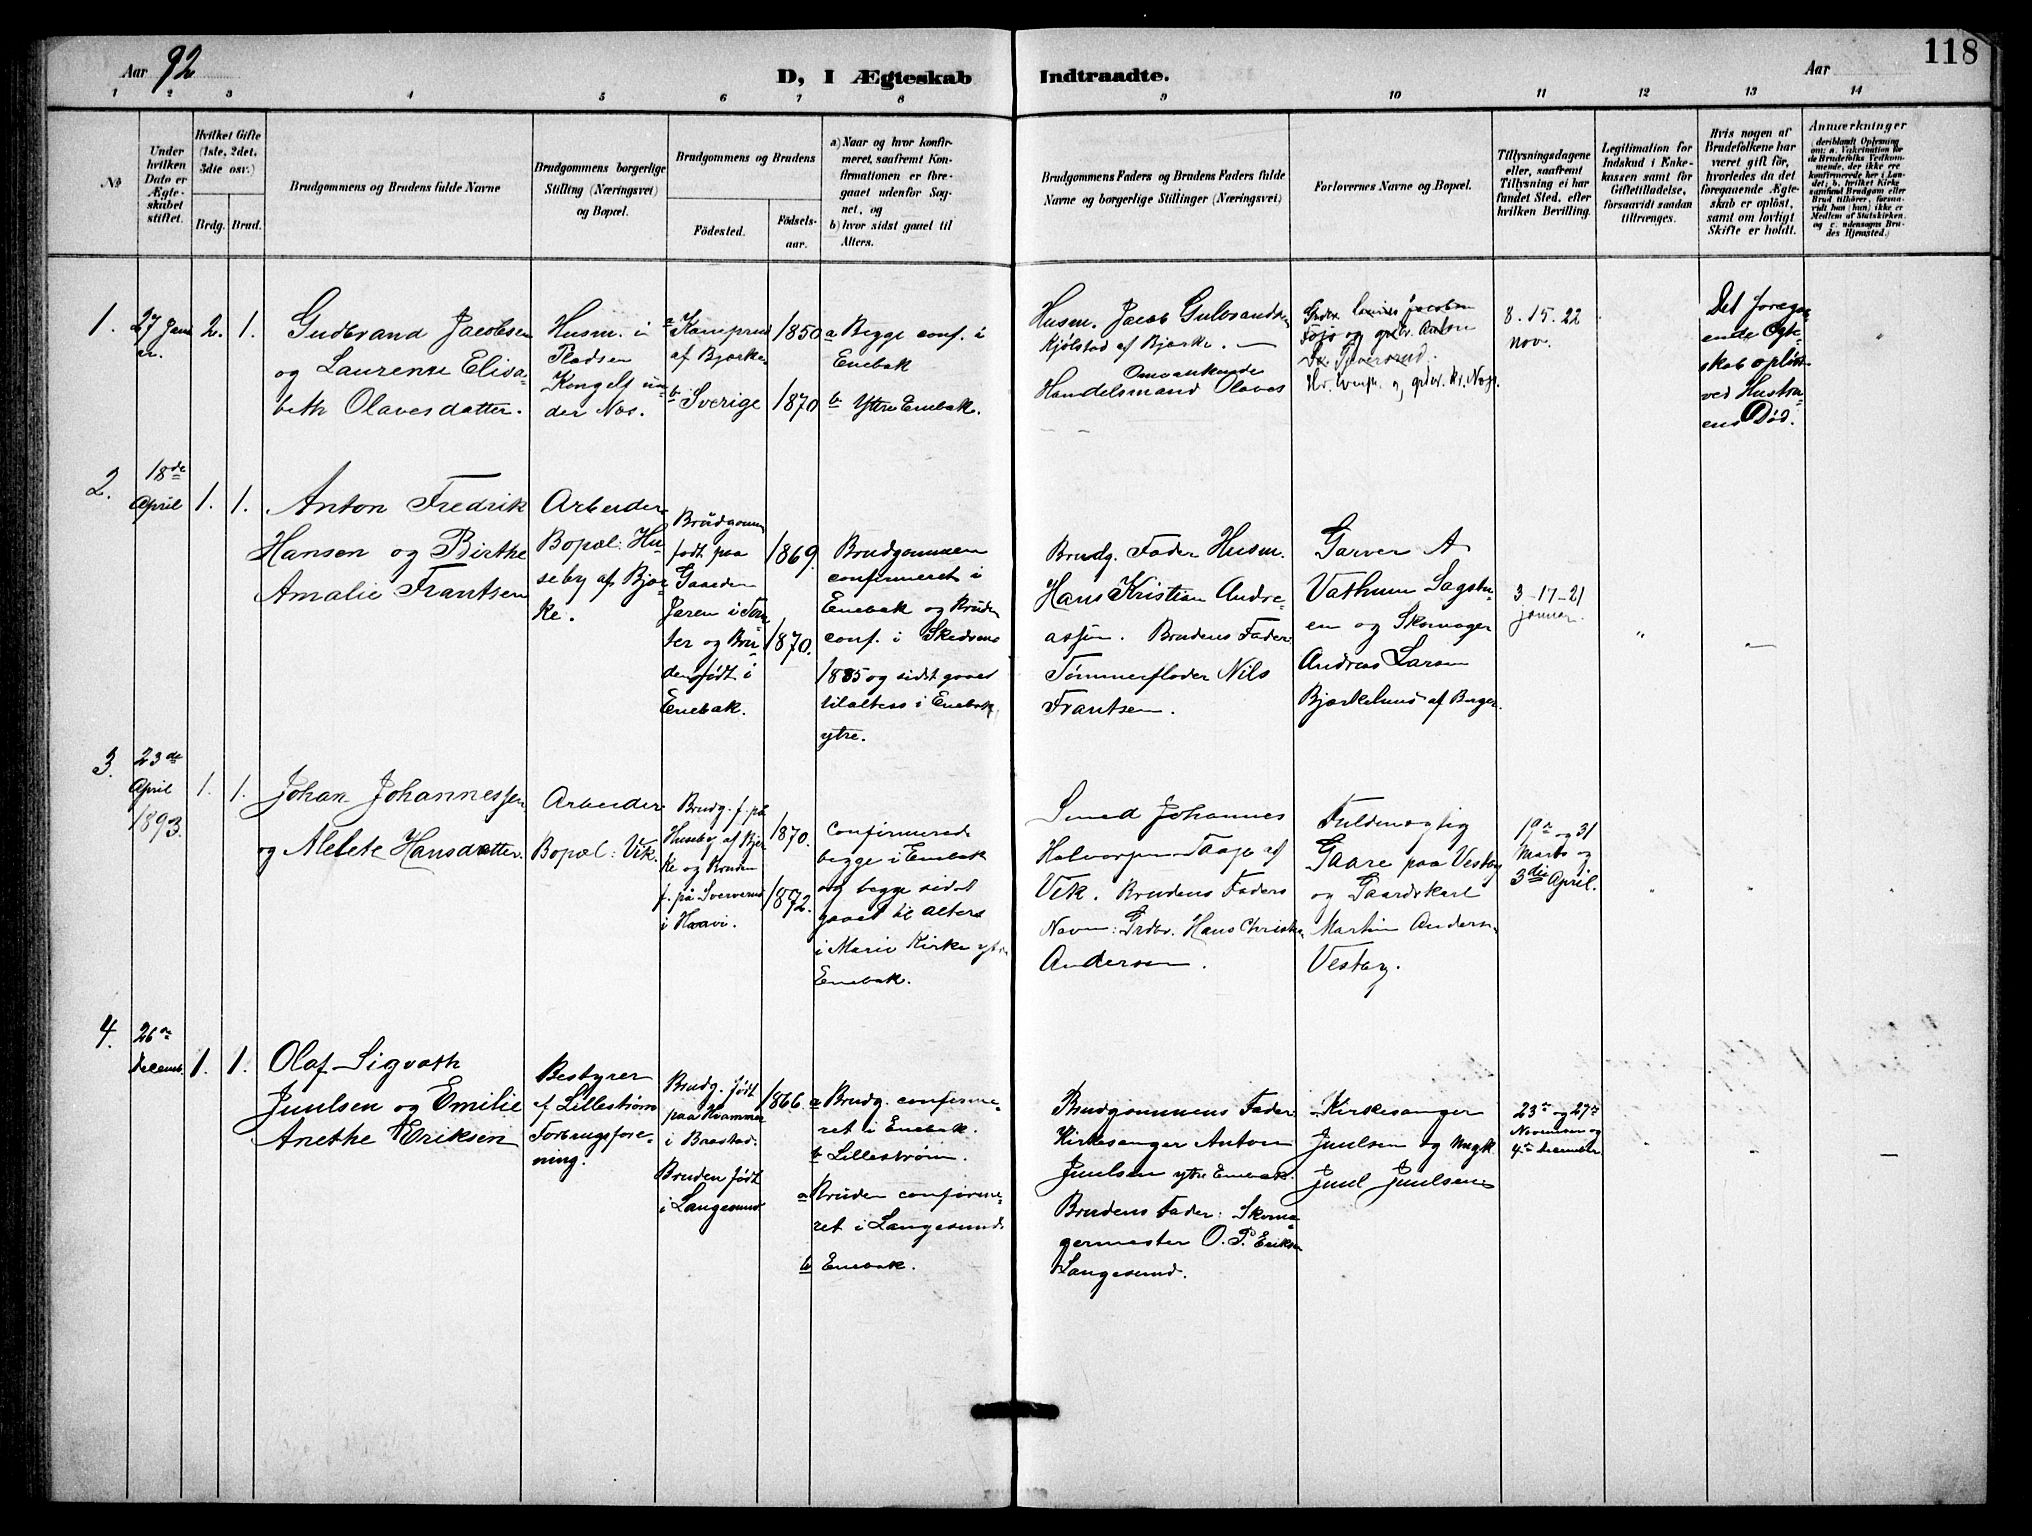 118
Aar 92
D, I Ægteskab Indtraadte.
Aar
1 2 3 4 5 6 7 8 9 10 11 12 13 14
No
Under hvilken Dato er Ægteskabet stiftet.
Hvilket Gifte (1ste, 2det, 3die osv.)
Brdg. Brud.
Brudgommens og Brudens fulde Navne
Brudgommens borgerlige Stilling (Næringsvei) og Bopæl.
Brudgommens og Brudens
Födested.
Födselsaar.
a) Naar og hvor konfirmeret, saafremt Konfirmationen er foregaaet udenfor Sognet, og
b) hvor sidst gaaet til Alters.
Brudgommens Faders og Brudens Faders fulde Navne og borgerlige Stillinger (Næringsvei)
Forlovernes Navne og Bopæl.
Tillysningsdagene eller, saafremt Tillysning ei har fundet Sted, efter hvilken Bevilling.
Legitimation for Indskud i Enkekassen samt for Giftetilladelse, forsaavidt saadan tiltrænges.
Hvis nogen af Brudefolkene har været gift för, hvorledes da det foregaaende Ægteskab er oplöst, samt om lovligt Skifte er holdt.
Anmærkninger (deriblandt Oplysning om: a. Vakcination for de Brudefolks Vedkommende, der ikke ere konfirmerede her i Landet; b. hvilket Kirkesamfund Brudgom eller Brud tilhörer, forsaavidt han (hun) ikke er Medlem af Statskirken, og c. udensogns Brudes Hjemsted.)
1.
27 Janu
ar.
2. 1.
Gudbrand Jacobsen
og Laurense Elisa-
beth Olavesdatter.
Husm. i
Pladsen
Kongelf un-
der Nos.
a Kamprud
af Bjerke
b Sverige
1850
1870
a Begge conf. i
Enebak
b Ytre Enebak.
Husm. Jacob Gulbrandsen
Kjølstad af Bjerke. —
Omvankende
Handelsmand Olaves
8. 15. 22
Nov.
Det foregaa-
ende Egte-
skab opløst
ved Hustru-
ens Død.
2.
18de
April
1. 1.
Anton Fredrik
Hansen og Birthe
Amalie Frantsen
Arbeider
Bopæl: Hu-
seby af Bjer-
ke.
Brudgommen
født paa
Gaarden
Jaren i
og Bru-
den født i
Enebak.
1869.
1870.
Brudgommen
confirmeret i
Enebak og Bruden
conf. i Skedsmo
1885 og sidst gaaet
til alters i Enebak
ytre.
Brudg. Fader Husm.
Hans Kristian Andre-
assen. Brudens Fader
Tømmerfløder Nils
Frantsen.
Garver A
Vathum Sagstu-
en og Skomager
Andreas Larsen
Bjerkelund af Berger.
3-17-21
januar.
3.
23de
April
1893.
1. 1.
Johan Johannessen
og Alete Hansdatter.
Arbeider
Bopæl: Vik.
Brudg. f. på
Huseby af Bjer-
ke og Bruden
f. på
i
1870.
1872.
Confirmerede
begge i Enebak
og begge sidst
gaaet til alters
i Mari Kirke ytre
Enebak.
Smed Johannes
Halvorsen Taaje af
Vik. Brudens Faders
Navn: Grdbr. Hans Christian
Andersen.
Fuldmægtig
Gaare paa Vestby
og Gaardskarl
Martin Andersen
Vestby.
19de og 31
Marts og
3die April.
4.
26de
Decemb.
1. 1.
Olaf Sigvath
Juulsen og Emilie
Anethe Eriksen
Bestyrer
af Lillestrøm
Forbrugsfore-
ning.
Brudg. født
paa Krammer
i
Bruden født
i Langesund
1866.
a Brudg. confirme-
ret i Enebak.
b Lillestrøm.
a Bruden confirme-
ret i Langesund
b Enebak.
Brudgommens Fader
Kirkesanger Anton
Juulsen ytre Enebak.
Brudens Fader: Skoma-
germester O. P. Eriksen
Langesund.
Kirkesanger
Juulsen og
Juul Juulsen
23de og 27de
November og
4de December